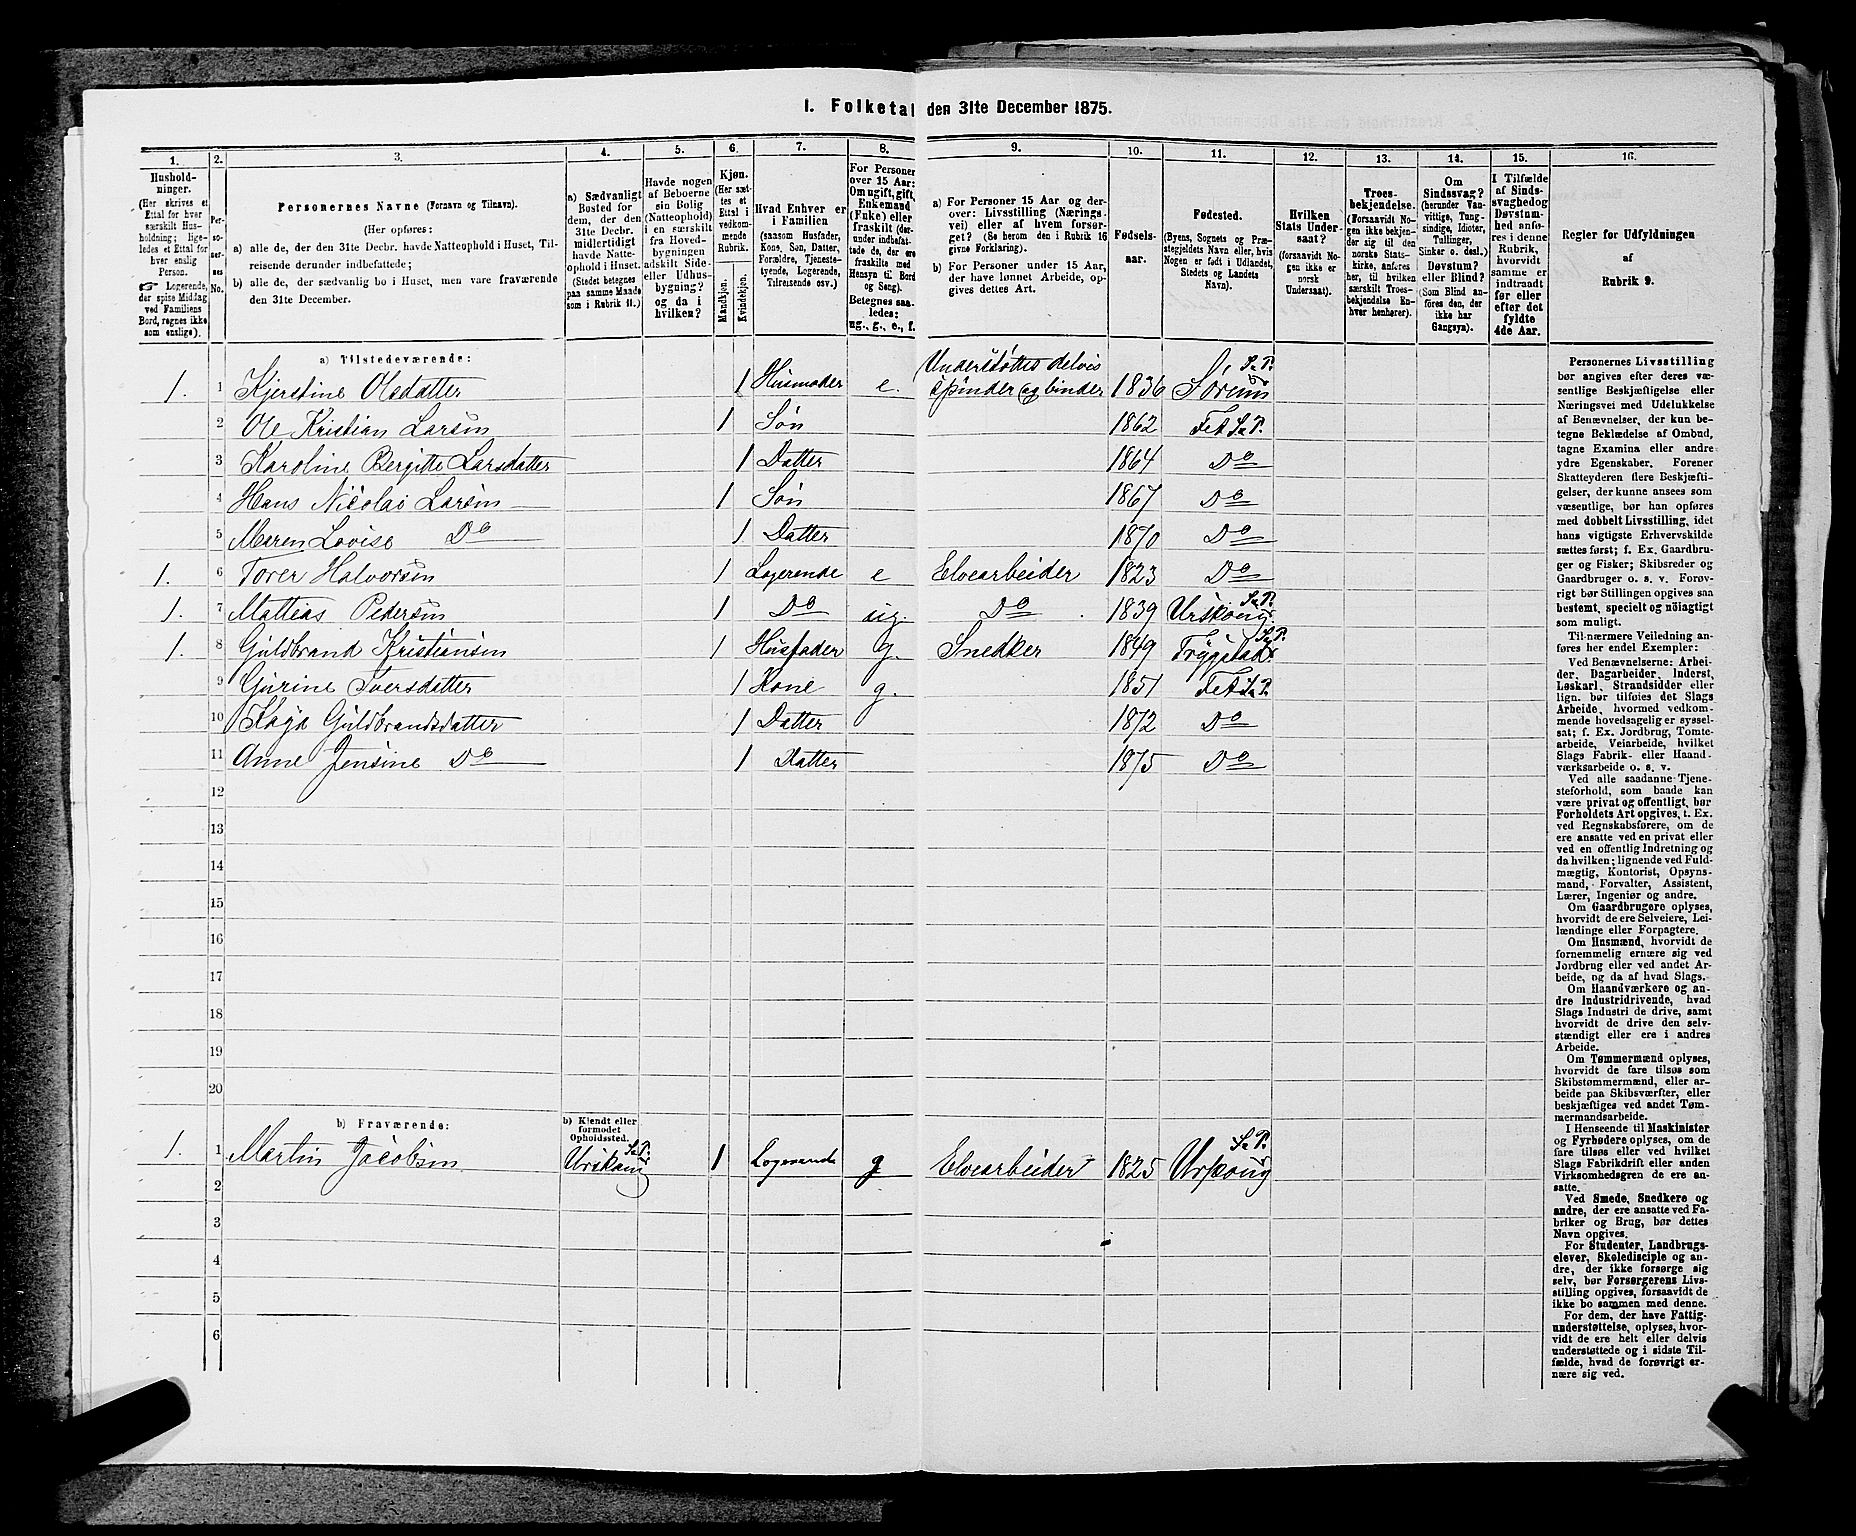 1. Folketal den 31te December 1875.
1. 2. 3. 4. 5. 6. 7. 8. 9. 10. 11. 12. 13. 14. 15. 16.
Hushold-
ninger.
(Her skrives et
Ettal for hver
særskilt Hus-
holdning; lige-
ledes et Ettal for
hver enslig
Person.
☞ Logerende,
der spise Middag
ved Familiens
Bord, regnes ikke
som enslige).
Per-
so-
ner-
nes
No.
Personernes Navne (Fornavn og Tilnavn).
(Her opføres:
a) alle de, der den 31te Decbr. havde Natteophold i Huset, Til-
reisende derunder indbefattede;
b) alle de, der sædvanlig bo i Huset, men vare fraværende
den 31te December.
a) Sædvanligt
Bosted for
dem, der den
31te Decbr.
midlertidigt
havde Natte-
ophold i Huset.
(Stedet betegnes
paa samme Maade
som i Rubrik 11.)
Havde nogen
af Beboerne
sin Bolig
(Natteophold)
i en særskilt
fra Hoved-
bygningen
adskilt Side-
eller Udhus-
bygning?
og da i
hvilken?
Kjøn.
(Her sæt-
tes et
Ettal i
vedkom-
mende
Rubrik.
Mandkjøn.
Kvindekjøn.
Hvad Enhver er
i Familien
(saasom Husfader,
Kone, Søn, Datter,
Forældre, Tjeneste-
tyende, Logerende,
Tilreisende osv.)
For Personer
over 15 Aar:
Om ugift, gift,
Enkemand
(Enke) eller
fraskilt (der-
under indbefat-
tede de, der ere
fraskilte med
Hensyn til Bord
og Seng).
Betegnes saa-
ledes:
ug., g., e., f.
a) For Personer 15 Aar og der-
over: Livsstilling (Nærings-
vei) eller af hvem forsør-
get? (Se herom den i Rubrik 16
givne Forklaring).
b) For Personer under 15 Aar,
der have lønnet Arbeide, op-
gives dettes Art.
Fødsels-
aar.
Fødested.
(Byens, Sognets og Præ-
stegjeldets Navn eller, hvis
Nogen er født i Udlandet,
Stedets og Landets
Navn).
Hvilken
Stats Under-
saat?
(forsaavidt No-
gen ikke er
norsk
Undersaat).
Troes-
bekjendelse.
(Forsaavidt No-
gen ikke bekjen-
der sig til den
norske Stats-
kirke, anføres
her, til hvilken
særskilt Troes-
bekjendelse En-
hver henhører).
Om
Sindssvag?
(herunder Van-
vittige, Tung-
sindige, Idioter,
Tullinger,
Sinker o. desl.)
Døvstum?
eller Blind?
(Som Blind an-
føres den, der
ikke har
Gangsyn).
I Tilfælde
af Sinds-
svaghed og
Døvstum-
hed anfø-
res i denne
Rubrik,
hvorvidt
samme er
indtraadt
før eller
efter det
fyldte
4de Aar.
Regler for Udfyldningen
af
Rubrik 9.
a) Tilstedeværende:
Understøttes delvis S. P.
1. 1 Kjerstine Olsdatter 1 Husmoder e. spinder og binder 1836 Sørum
2 Ole Kristian Larsen 1 Søn 1862 Fet S. P.
3 Karoline Bergitte Larsdatter 1 Datter 1864 Do
4 Hans Nicolai Larsen 1 Søn 1867 Do
5 Maren Lovise Do 1 Datter 1870 Do
1. 6 Torer Halvorsen 1 Logerende e Elvearbeider 1823 Do
1. 7 Mattias Pedersen 1 Do ug. Do 1839 Urskoug S. P.
1. 8 Guldbrand Kristiansen 1 Husfader g. Snedker 1849 Trygstad S. P.
9 Gurine Iversdatter 1 Kone g. 1851 Fet S. P.
10 Kaja Guldbrandsdatter 1 Datter 1872 Do
11 Anne Jensine Do 1 Datter 1875 Do
12
13
14
15
16
17
18
19
20
b) Fraværende:
b) Kjendt eller
formodet
Opholdssted.
1. 1 Martin Jacobsen Urskoug S. P. 1 Logerende g Elvearbeider 1825 Urskoug S. P.
2
3
4
5
6
Personernes Livsstilling
bør angives efter deres væ-
sentlige Beskjæftigelse eller
Næringsvei med Udelukkelse
af Benævnelser, der kun be-
tegne Beklædelse af Ombud,
tagne Examina eller andre
ydre Egenskaber. Forener
Skatteyderen flere Beskjæfti-
gelser, der kunne ansees som
væsentlige, bør han opføres
med dobbelt Livsstilling, idet
hans vigtigste Erhvervskilde
sættes først; f. Ex. Gaardbru-
ger og Fisker; Skibsreder og
Gaardbruger o. s. v. Forøv-
rigt bør Stillingen opgives saa
bestemt, specielt og nøiagtigt
som muligt.
Til nærmere Veiledning an-
føres her endel Exempler:
Ved Benævnelserne: Arbei-
der, Dagarbeider, Inderst,
Løskarl, Strandsidder eller
lign. bør tilføies det Slags
Arbeide, hvormed vedkom-
mende hovedsagelig er syssel-
sat; f. Ex. Jordbrug, Tomte-
arbeide, Veiarbeide, hvilket
Slags Fabrik- eller Haand-
værksarbeide o. s. v.
Ved alle saadanne Tjene-
steforhold, som baade kan
være privat og offentligt, bør
Forholdets Art opgives, t. Ex.
ved Regnskabsførere, om de
ere ansatte ved en privat eller
ved en offentlig Indretning og
da hvilken; lignende ved Fuld-
mægtig, Kontorist, Opsyns-
mand, Forvalter, Assistent,
Lærer, Ingeniør og andre.
Om Gaardbrugere oplyses,
hvorvidt de ere Selveiere, Lei-
lændinge eller Forpagtere.
Om Husmænd, hvorvidt de
fornemmelig ernære sig ved
Jordbrug eller ved andet Ar-
beide, og da af hvad Slags.
Om Haandværkere og an-
dre Industridrivende, hvad
Slags Industri de drive, samt
hvorvidt de drive den selv-
stændigt eller ere i andres
Arbeide.
Om Tømmermænd oplyses,
hvorvidt de fare tilsøs som
Skibstømmermænd, eller ar-
beide paa Skibsværfter, eller
beskjæftiges ved andet Tøm-
mermandsarbeide.
I Henseende til Maskinister
og Fyrbødere oplyses, om de
fare tilsøs eller ved hvilket
Slags Fabrikdrift eller anden
Virksomhedsgren de ere an-
satte.
Ved Smede, Snedkere og
andre, der ere ansatte ved Fa-
briker og Brug, bør dettes
Navn opgives.
For Studenter, Landbrugs-
elever, Skoledisciple og an-
dre, der ikke forsørge sig
selv, bør Forsørgerens Livs-
stilling opgives, forsaavidt de
ikke bo sammen med denne.
For dem, der have Fattig-
understøttelse, oplyses, hvor-
vidt de ere helt eller delvis
understøttede og i sidste Til-
fælde, hvad de forøvrigt er-
nære sig ved.